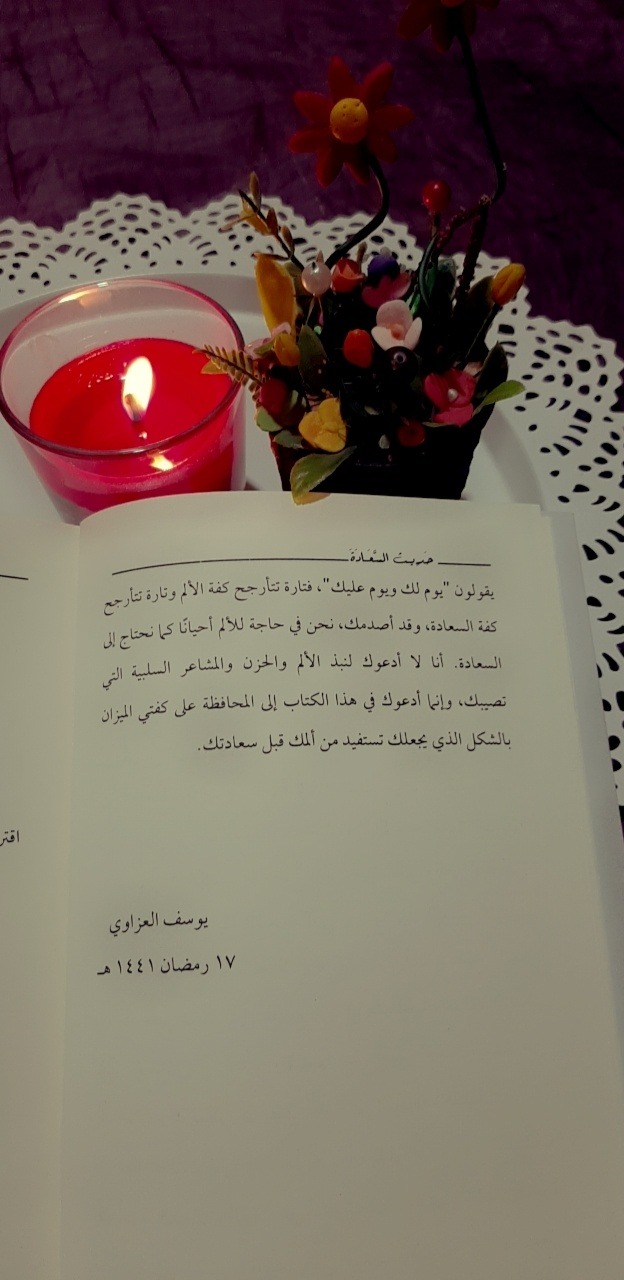 حديث السَّعَادَة
يقولون "يوم لك ويوم عليك"، فتارة تتأرجح كفة الألم وتارة تتأرجح
كفة السعادة، وقد أصدمك، نحن في حاجة للألم أحيانًا كما نحتاج إلى
السعادة. أنا لا أدعوك لنبذ الألم والحزن والمشاعر السلبية التي
تصيبك، وإنما أدعوك في هذا الكتاب إلى المحافظة على كفتي الميزان
بالشكل الذي يجعلك تستفيد من ألمك قبل سعادتك.
يوسف العزاوي
١٧ رمضان ١٤٤١ هـ